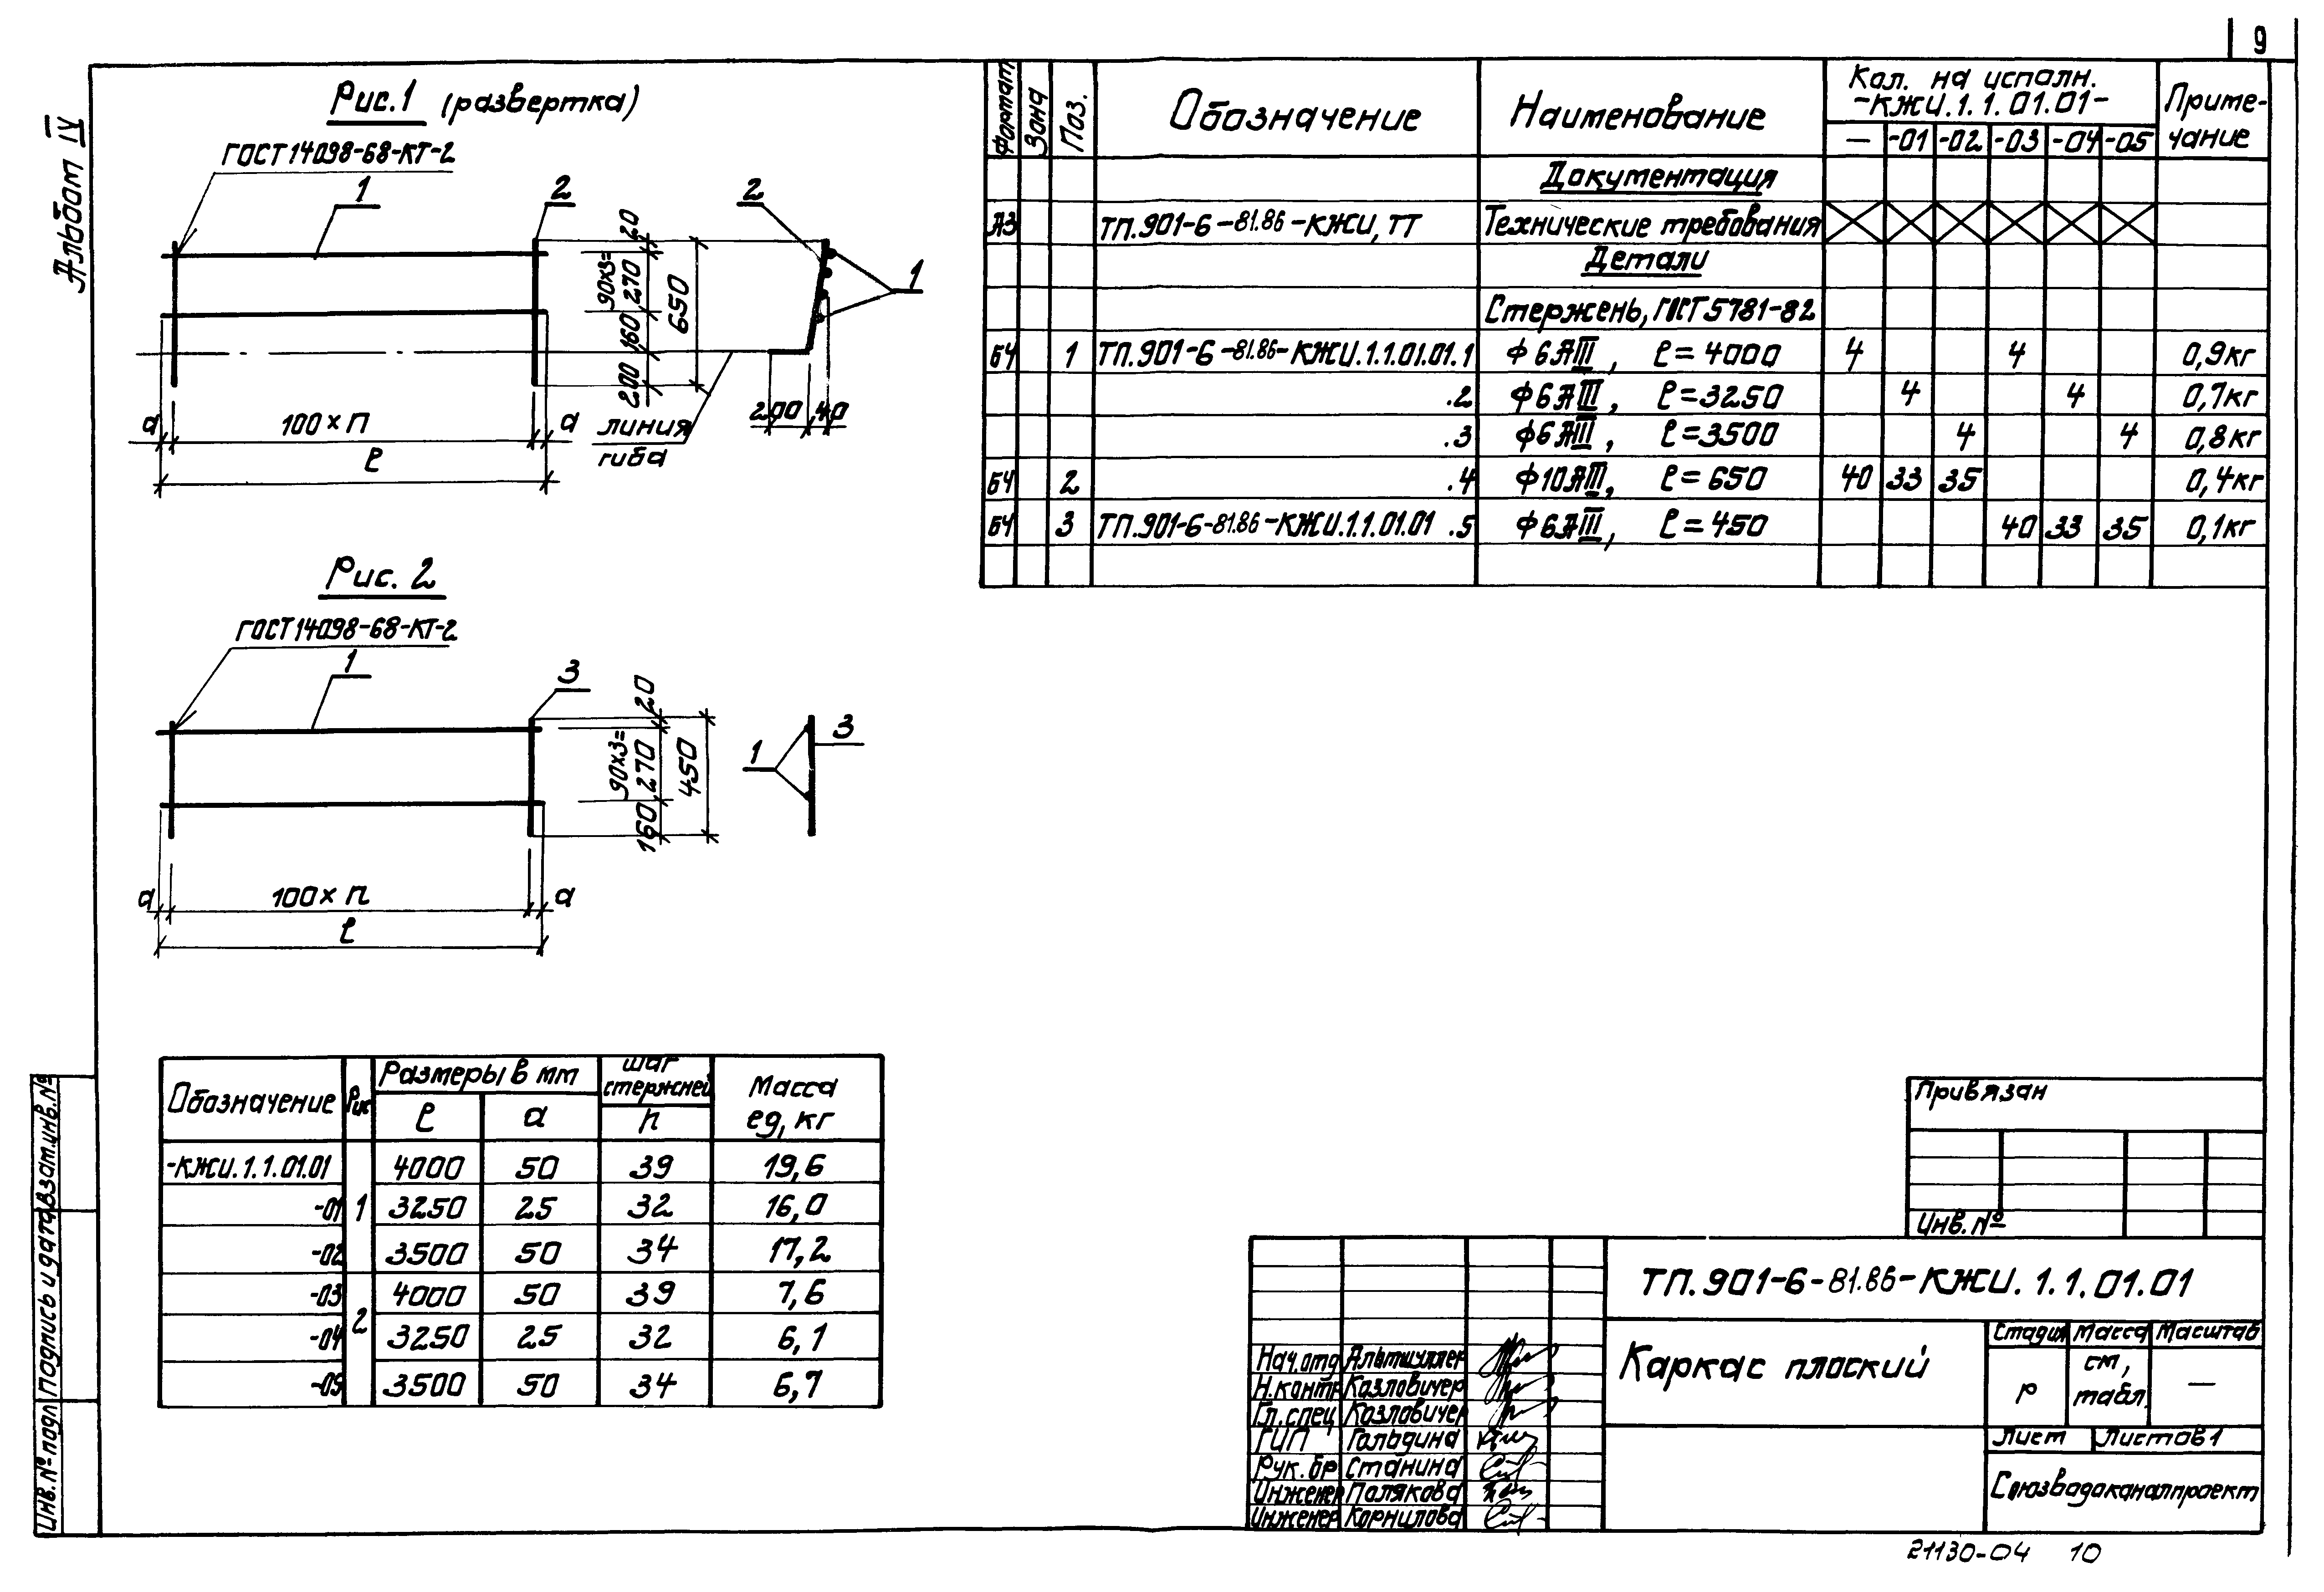 9
Альбом IV
Рис.1 (развертка)
ГОСТ 14098-68-КТ-2
1
2
2
1
20
90х3=
270
160
200
650
а
100 × п
а
ℓ
линия
гиба
200
40
Рис. 2
ГОСТ 14098-68-КТ-2
1
3
3
1
20
90х3=
270
160
450
а
100 × п
а
ℓ
Формат Зона Поз. Обозначение Наименование Кол. на исполн. Приме-
-КЖИ.1.1.01.01- чание
— -01 -02 -03 -04 -05
Документация
А3 ТП.901-6-81.86-КЖИ, ТТ Технические требования
Детали
Стержень, ГОСТ 5781-82
БЧ 1 ТП.901-6-81.86-КЖИ.1.1.01.01.1 ф 6 АIII, ℓ = 4000 4 4 0,9кг
.2 ф 6 АIII, ℓ = 3250 4 4 0,7кг
.3 ф 6 АIII, ℓ = 3500 4 4 0,8кг
БЧ 2 .4 ф 10 АIII, ℓ = 650 40 33 35 0,4кг
БЧ 3 ТП.901-6-81.86-КЖИ.1.1.01.01 .5 ф 6 АIII, ℓ = 450 40 33 35 0,1кг
Обозначение Рис Размеры в мм шаг стержней Масса
ℓ а п ед, кг
-КЖИ.1.1.01.01 1 4000 50 39 19,6
-01 3250 25 32 16,0
-02 3500 50 34 17,2
-03 2 4000 50 39 7,6
-04 3250 25 32 6,1
-05 3500 50 34 6,7
Привязан
Инв. №
ТП.901-6-81.86-КЖИ.1.1.01.01
Каркас плоский
Стадия Масса Масштаб
р см, табл. —
Лист Листов 1
Союзводоканалпроект
Нач.отд Альтшуллер
Н.контр Козловичер
Гл.спец Козловичер
ГИП Гольдина
Рук.бр Станина
Инженер Полякова
Инженер Корнилова
Инв.№ подл Подпись и дата Взам.инв.№
21130-04 10